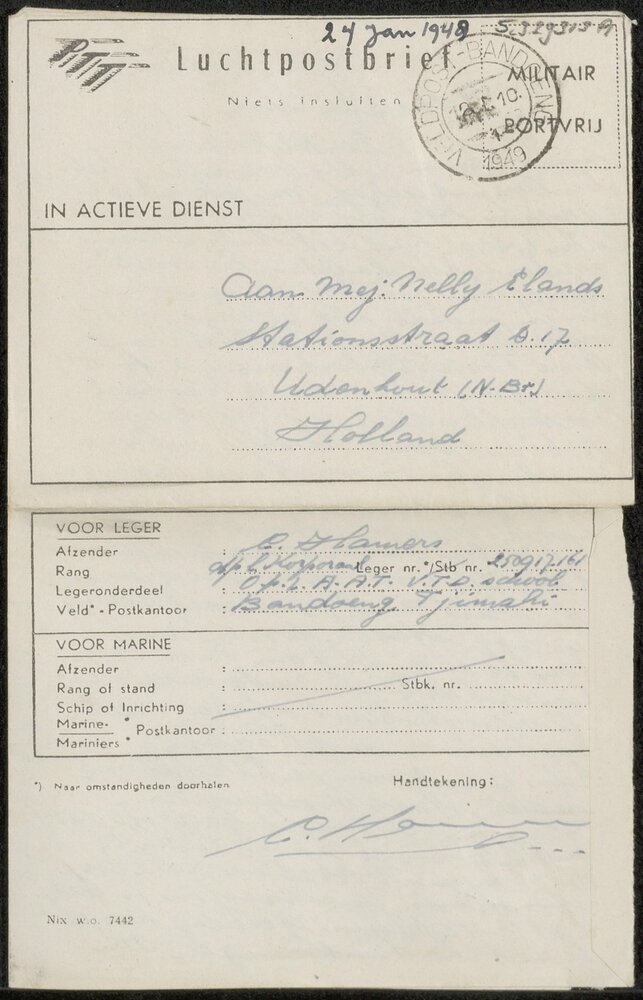 24 Jan 1949
PTT
Luchtpostbrief
Niets insluiten
MILITAIR
PORTVRIJ
VELDPOST-BANDOENG
1949
IN ACTIEVE DIENST
Aan Mej. Nelly Elands
Stationsstraat B.17
Udenhout (N-Br)
Holland
VOOR LEGER
Afzender : C. Hamers
Rang dpl. Korporaal Leger nr.*/Stb nr. 250917161
Legeronderdeel : Opl. A.A.T. V.T.O. school
Veld* - Postkantoor : Bandoeng Tjimahi
VOOR MARINE
Afzender :
Rang of stand : Stbk. nr.
Schip of Inrichting :
Marine- * Postkantoor :
Mariniers *
*) Naar omstandigheden doorhalen
Handtekening:
C. Hamers
Nix w.o. 7442